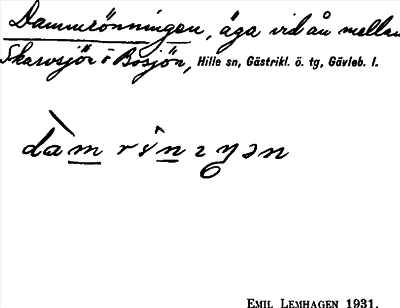 Dammrönningen, äga vid ån mellan
Skarvsjön o Bosjön, Hille sn, Gästrikl. ö. tg, Gävleb. l.
dàm rönıŋən
EMIL LEMHAGEN 1931.